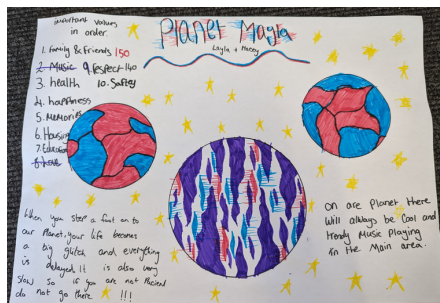 important values
in order.
1. Family & Friends 150
2. Music 9. Respect 140
3. health 10. Safety
4. happness
5. Memories
6. Housing
7. Education
8. Love
Planet Mayla
Layla +
When you step a foot on to
our Planet, your life becomes
a big glitch and everything
is delayed. It is also very
slow so if you are not Pacient
do not go there !!!
on are Planet there
Will always be Cool and
trendy Music Playing
in the Main area.